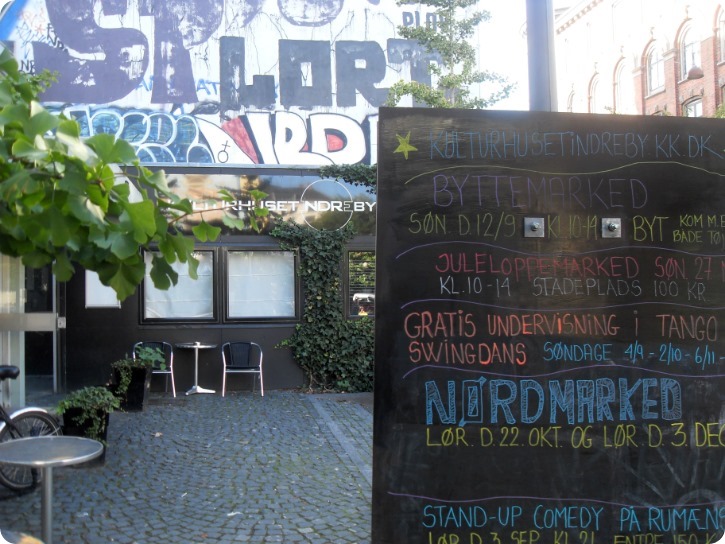 LORT
KULTURHUSETINDREBY
KULTURHUSETINDREBY.KK.DK
BYTTEMARKED
SØN D.12/9 KL.10-14 BYT KOM M.E
BÅDE TØ
JULELOPPEMARKED SØN 27
KL.10-14 STADEPLADS 100 KR
GRATIS UNDERVISNING i TANGO
SWINGDANS SØNDAGE 4/9-2/10-6/11
NØRDMARKED
LØR. D. 22. OKT. OG LØR D. 3. DEC
STAND-UP COMEDY PÅ RUMÆNS
LØR D. 3. SEP. KL. 21 ENTRE 150 K